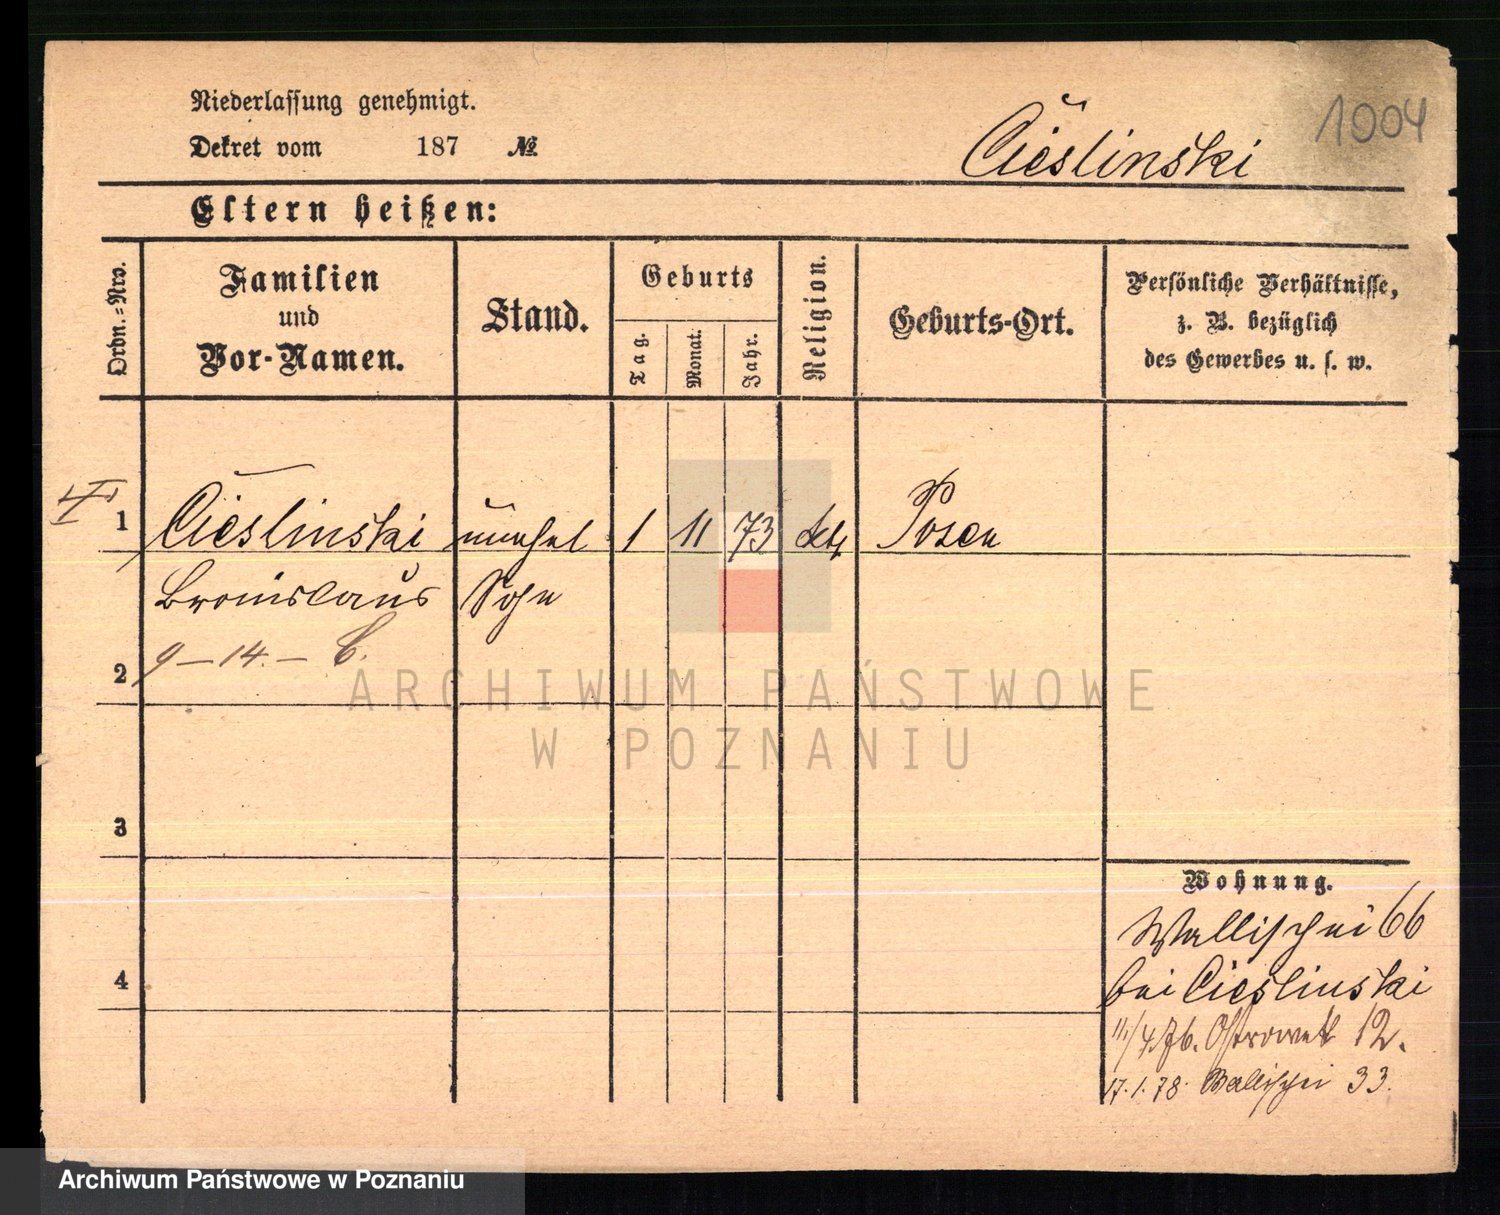 Niederlassung genehmigt.
Dekret vom 187 №
Cieślinski
1004
Eltern heißen:
Ordn.-Nro.
Familien
und
Vor-Namen.
Stand.
Geburts
Tag.
Monat.
Jahr.
Religion.
Geburts-Ort.
Persönliche Verhältnisse,
z. B. bezüglich
des Gewerbes u. s. w.
1
Cieślinski
unehel
1
11
73
kth
Posen
Bronislaus
Sohn
9-14.-
2
3
4
Wohnung.
Wallischei 66
bei Cieslinski
11/4.76. Ostrowek 12.
17.1.78. Wallischei 33.
ARCHIWUM PAŃSTWOWE
W POZNANIU
Archiwum Państwowe w Poznaniu